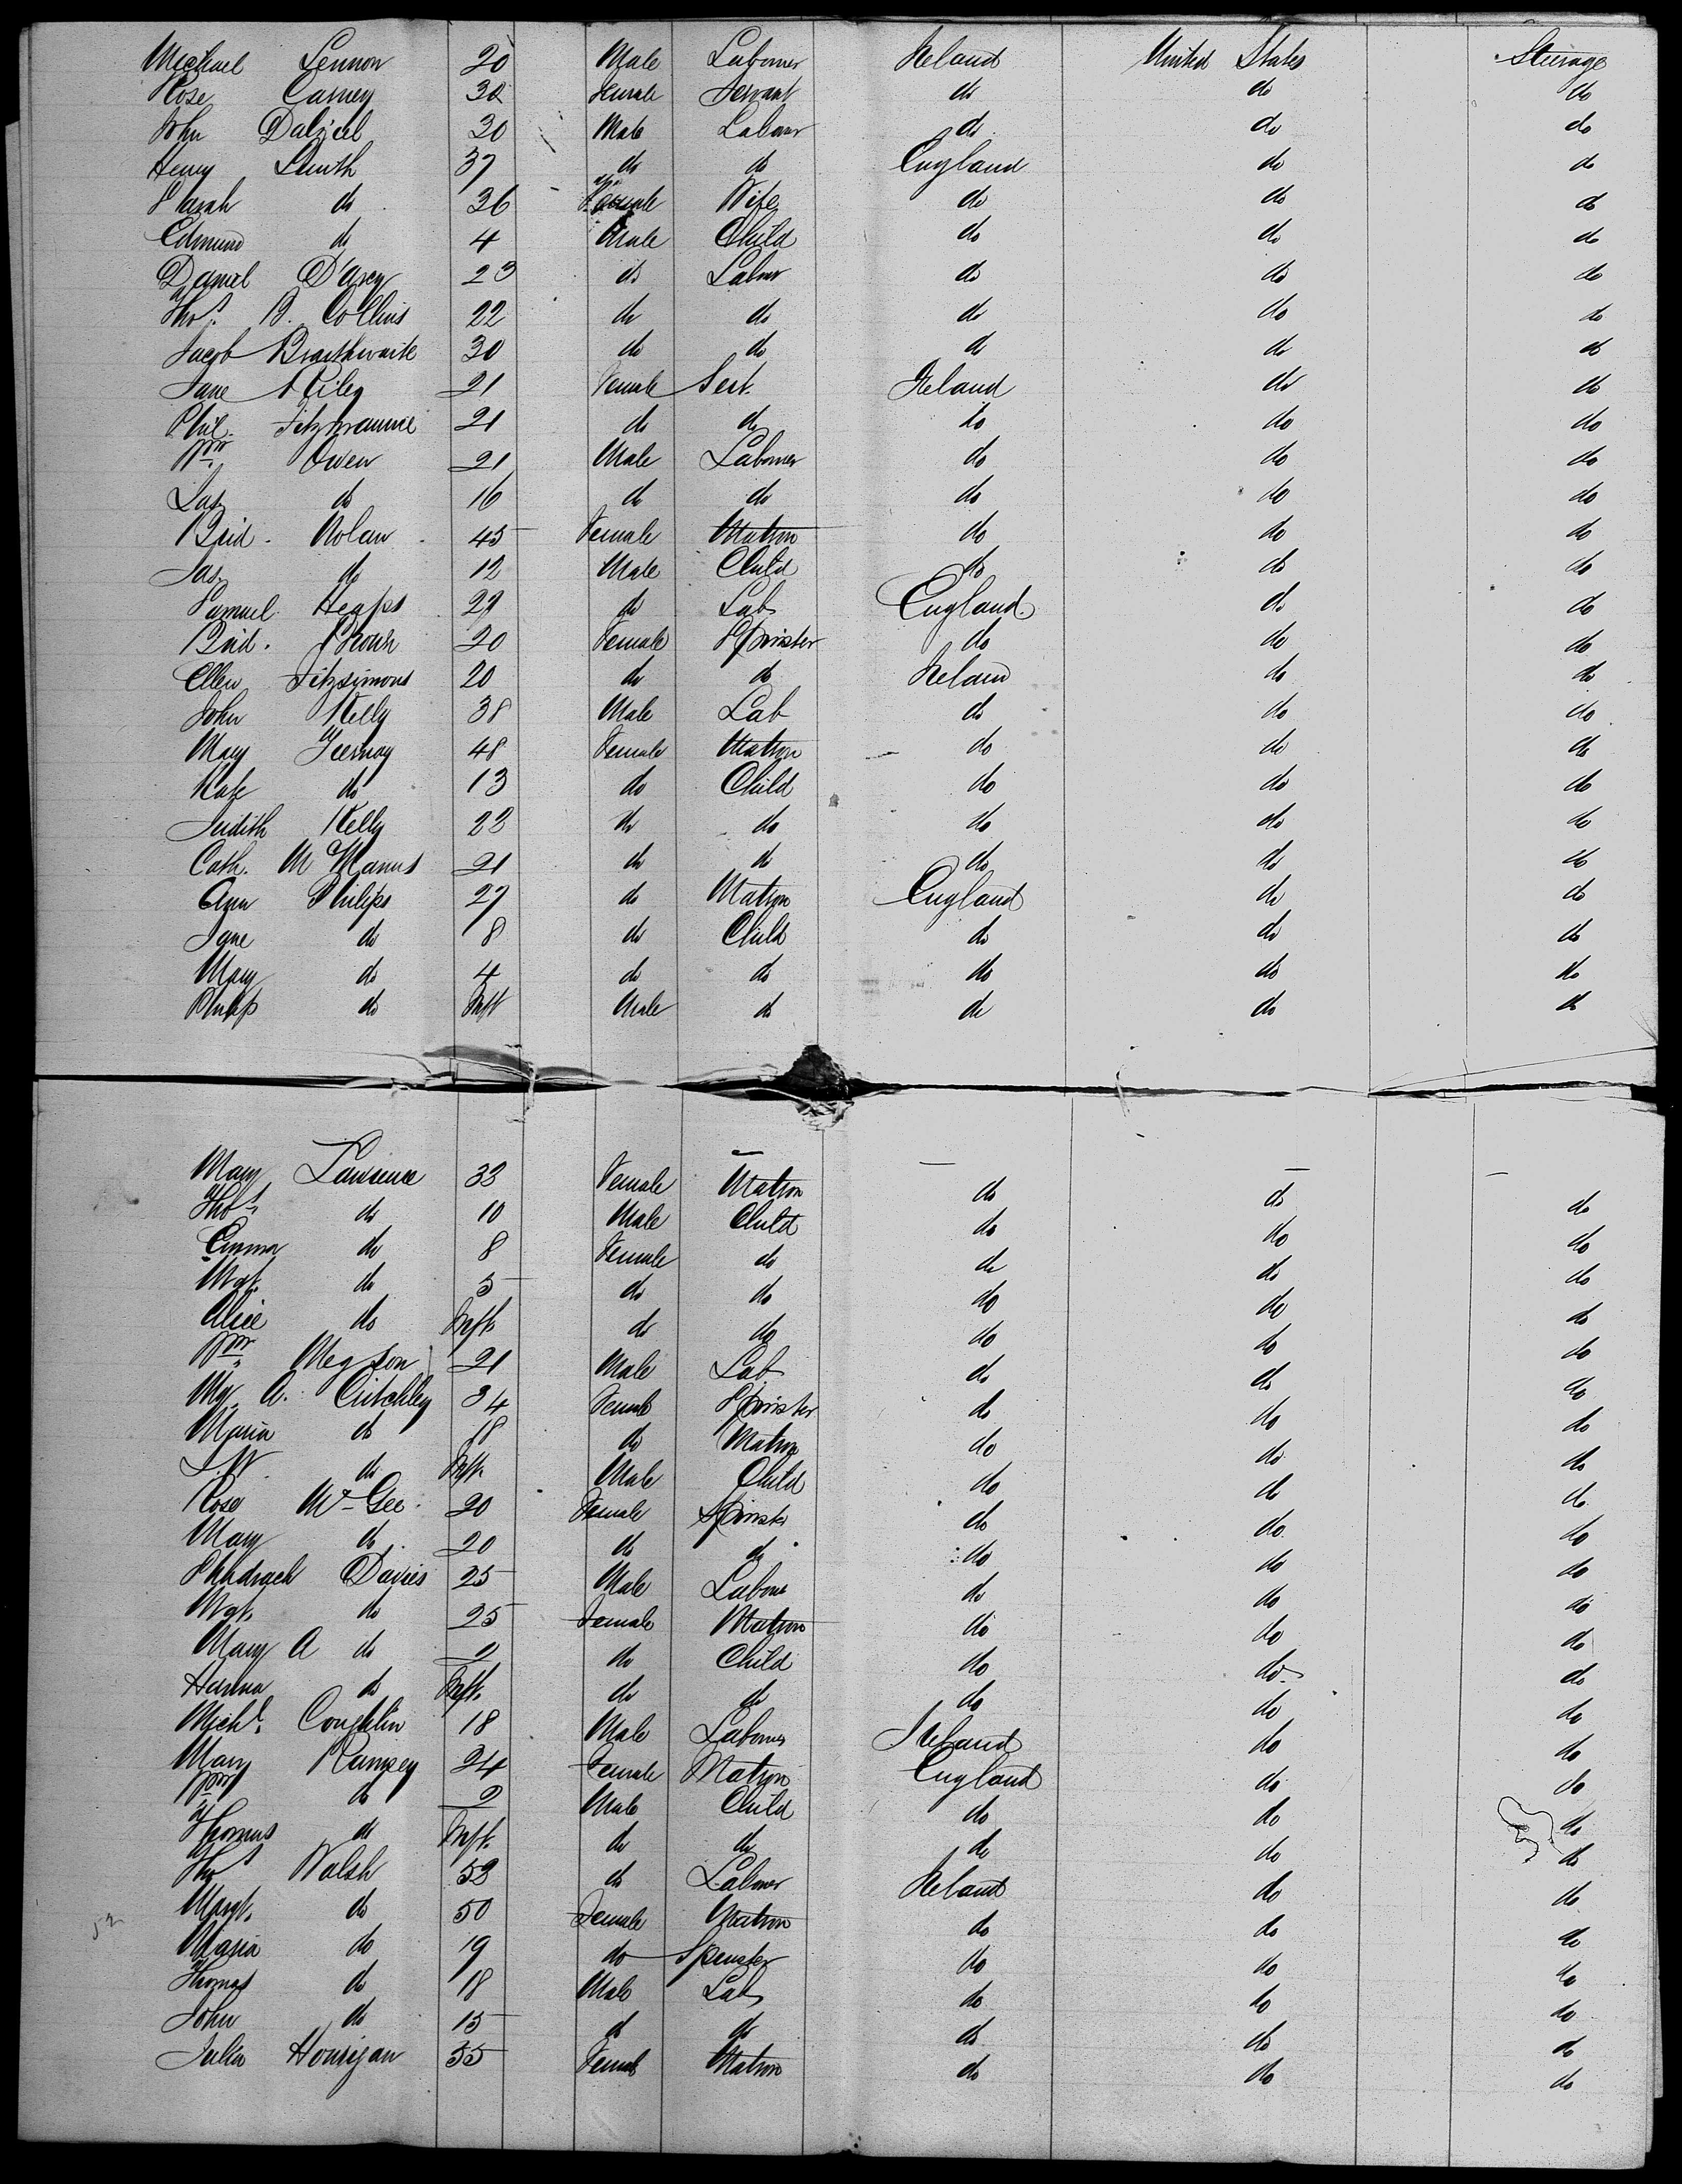 Michael Lennon 20 Male Laborer Ireland United States Steerage
Rose Carney 30 Female Servant do do do
John Dalziel 30 Male Laborer do do do
Henry Smith 37 do do England do do
Sarah do 36 Female Wife do do do
Edmund do 4 Male Child do do do
Daniel D'Arcy 23 do Labor do do do
Thos. B. Collins 22 do do do do do
Jacob Braithwaite 30 do do do do do
Jane Riley 21 Female Sert. Ireland do do
Phil. Fitzmaurice 21 do do do do do
Wm. Owen 21 Male Laborer do do do
Jas. do 16 do do do do do
Brid. Nolan 45 Female Matron do do do
Jas. do 12 Male Child do do do
Samuel Heaps 29 do Lab England do do
Brid. 20 Female Spinster do do do
Ellen Fitzsimons 20 do do Ireland do do
John Kelly 38 Male Lab do do do
Mary 48 Female Matron do do do
Kate do 13 do Child do do do
Judith Kelly 22 do do do do do
Cath. McManus 21 do do do do do
Ann Philips 27 do Matron England do do
Jane do 8 do Child do do do
Mary do 4 do do do do do
Philip do Inft Male do do do do
Mary Lawrence 33 Female Matron do do do
Thos. do 10 Male Child do do do
Emma do 8 Female do do do do
Mgt. do 5 do do do do do
Alice do Inft. do do do do do
Wm. Megson 21 Male Lab do do do
My. A. Critchley 34 Female Spinster do do do
Maria do 18 do Matron do do do
do Inft. Male Child do do do
Rose McGee 20 Female Spinster do do do
Mary do 20 do do do do do
Shadrach Davies 25 Male Labor do do do
Mgt. do 25 Female Matron do do do
Mary A do 2 do Child do do do
Hanna do Inft. do do do do do
Michl. Coughlin 18 Male Laborer Ireland do do
Mary Ramsey 24 Female Matron England do do
Wm. do 2 Male Child do do do
Thomas do Inft. do do do do do
Thos Walsh 52 do Labour Ireland do do
Margt. do 50 Female Matron do do do
Maria do 19 do Spinster do do do
Thomas do 18 Male Lab do do do
John do 15 do do do do do
Julia Hourigan 35 Female Matron do do do
52